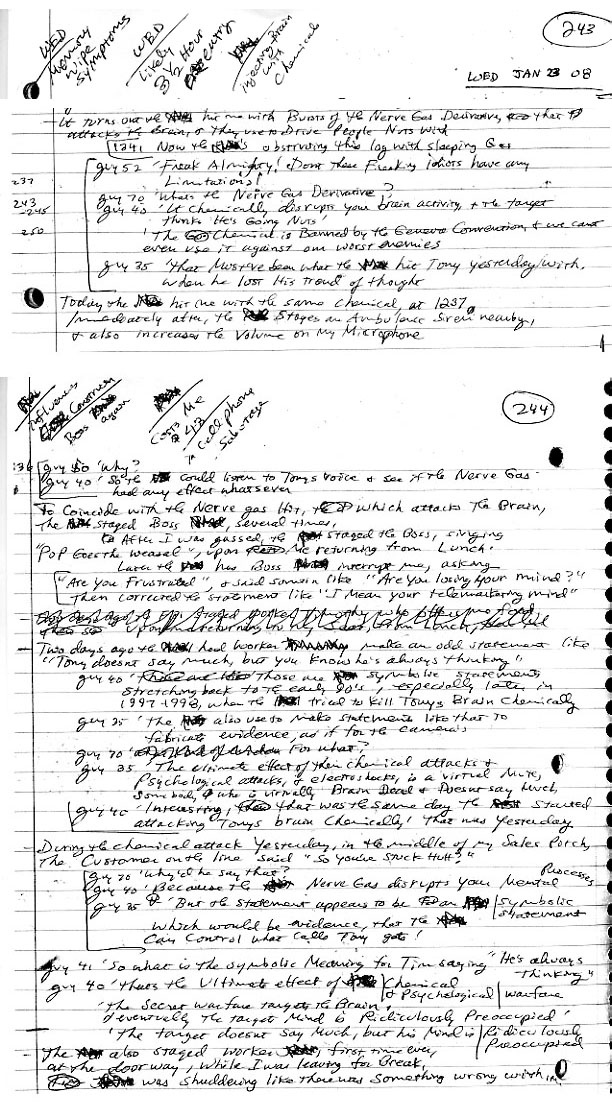 243
WED
Memory
Wipe
Symptoms
WED
Likely
3½ Hour
entry
injecting Brain
with
Chemicals
WED JAN 23 08
"It turns out the hit me with Bursts of the Nerve Gas Derivative, that
attacks the Brain, & they use to Drive People Nuts with
1241 Now the obstructing this log with sleeping Gas
guy 52 'Freak Almighty! Dont these Freaking idiots have any
Limitations!'
237
guy 70 'Whats the Nerve Gas Derivative?'
243
-245
guy 40 'It chemically disrupts your brain activity, & the target
thinks He's Going Nuts'
250
'The Chemical is Banned by the Geneva Convention, & we cant
even use it against our worst enemies
guy 35 'that Must've been what the hit Tony yesterday with,
when he lost His Troud of thought
Today the hit me with the same Chemical, at 1237,
immediately after, the Stages an Ambulance Siren nearby,
& also increases the Volume on My Microphone
244
influences
Construction
Boss again
Costs Me
$413
in Cell phone
Sabotage
guy 50 'Why?'
guy 40 'So the could listen to Tonys voice & see if the Nerve Gas
had any effect whatsoever
To Coincide with the Nerve gas Hit, which attacks the Brain,
the staged Boss, several times,
After I was gassed, the staged the Boss, singing
"Pop Goes the weasal", upon Me returning from Lunch.
Later the has Boss interrupt me, asking
"Are You Frustrated", & said somthin like "Are you losing your mind?"
Then corrected the statement like "I Mean your telemarketing mind"
Two days ago the had worker make an odd statement like
"Tony doesnt say much, but you know he's always thinking"
guy 40 Those are symbolic statements
stretching back to the early 90's, especially later in
1997-1998, when the tried to kill Tonys Brain Chemically
guy 35 'the also use to make statements like that to
fabricate evidence, as if for the cameras
guy 70 For what?
guy 35 'The ultimate effect of their chemical attacks &
Psychological attacks, & electroshocks, is a virtual Mute,
Somebody who is virtually Brain Dead & Doesnt say Much,
guy 40 'Interesting, that was the same day the started
attacking Tonys brain Chemically! that was Yesterday
During the chemical attack Yesterday, in the middle of my Sales Pitch,
The Customer on the line said "So you're Stuck Huh?"
guy 70 'Why'd he say that?
guy 40 'Because the Nerve Gas disrupts your Mental Processes
guy 35 'But the statement appears to be an symbolic statement
which would be evidence, that the
Can Control what calls Tony gets!
guy 41 'So what is the symbolic Meaning for Tim saying "He's always
thinking"
guy 40 'thats the Ultimate effect of Chemical
& Psychological warfare
'The Secret warfare targets the Brain,
& eventually the target Mind is Ridiculously Preoccupied'
'The target doesnt say Much, but his Mind is Ridiculously
Preoccupied
The also staged worker, first time ever,
at the doorway, while I was leaving for Break,
was shuddering like there was something wrong with